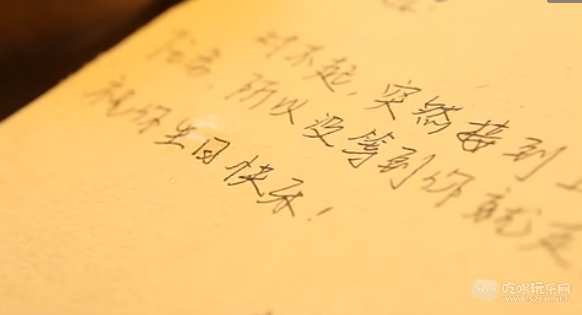 对不起,突然接到上
任务,所以没等到你就走
祝你生日快乐!
吃喝玩乐网